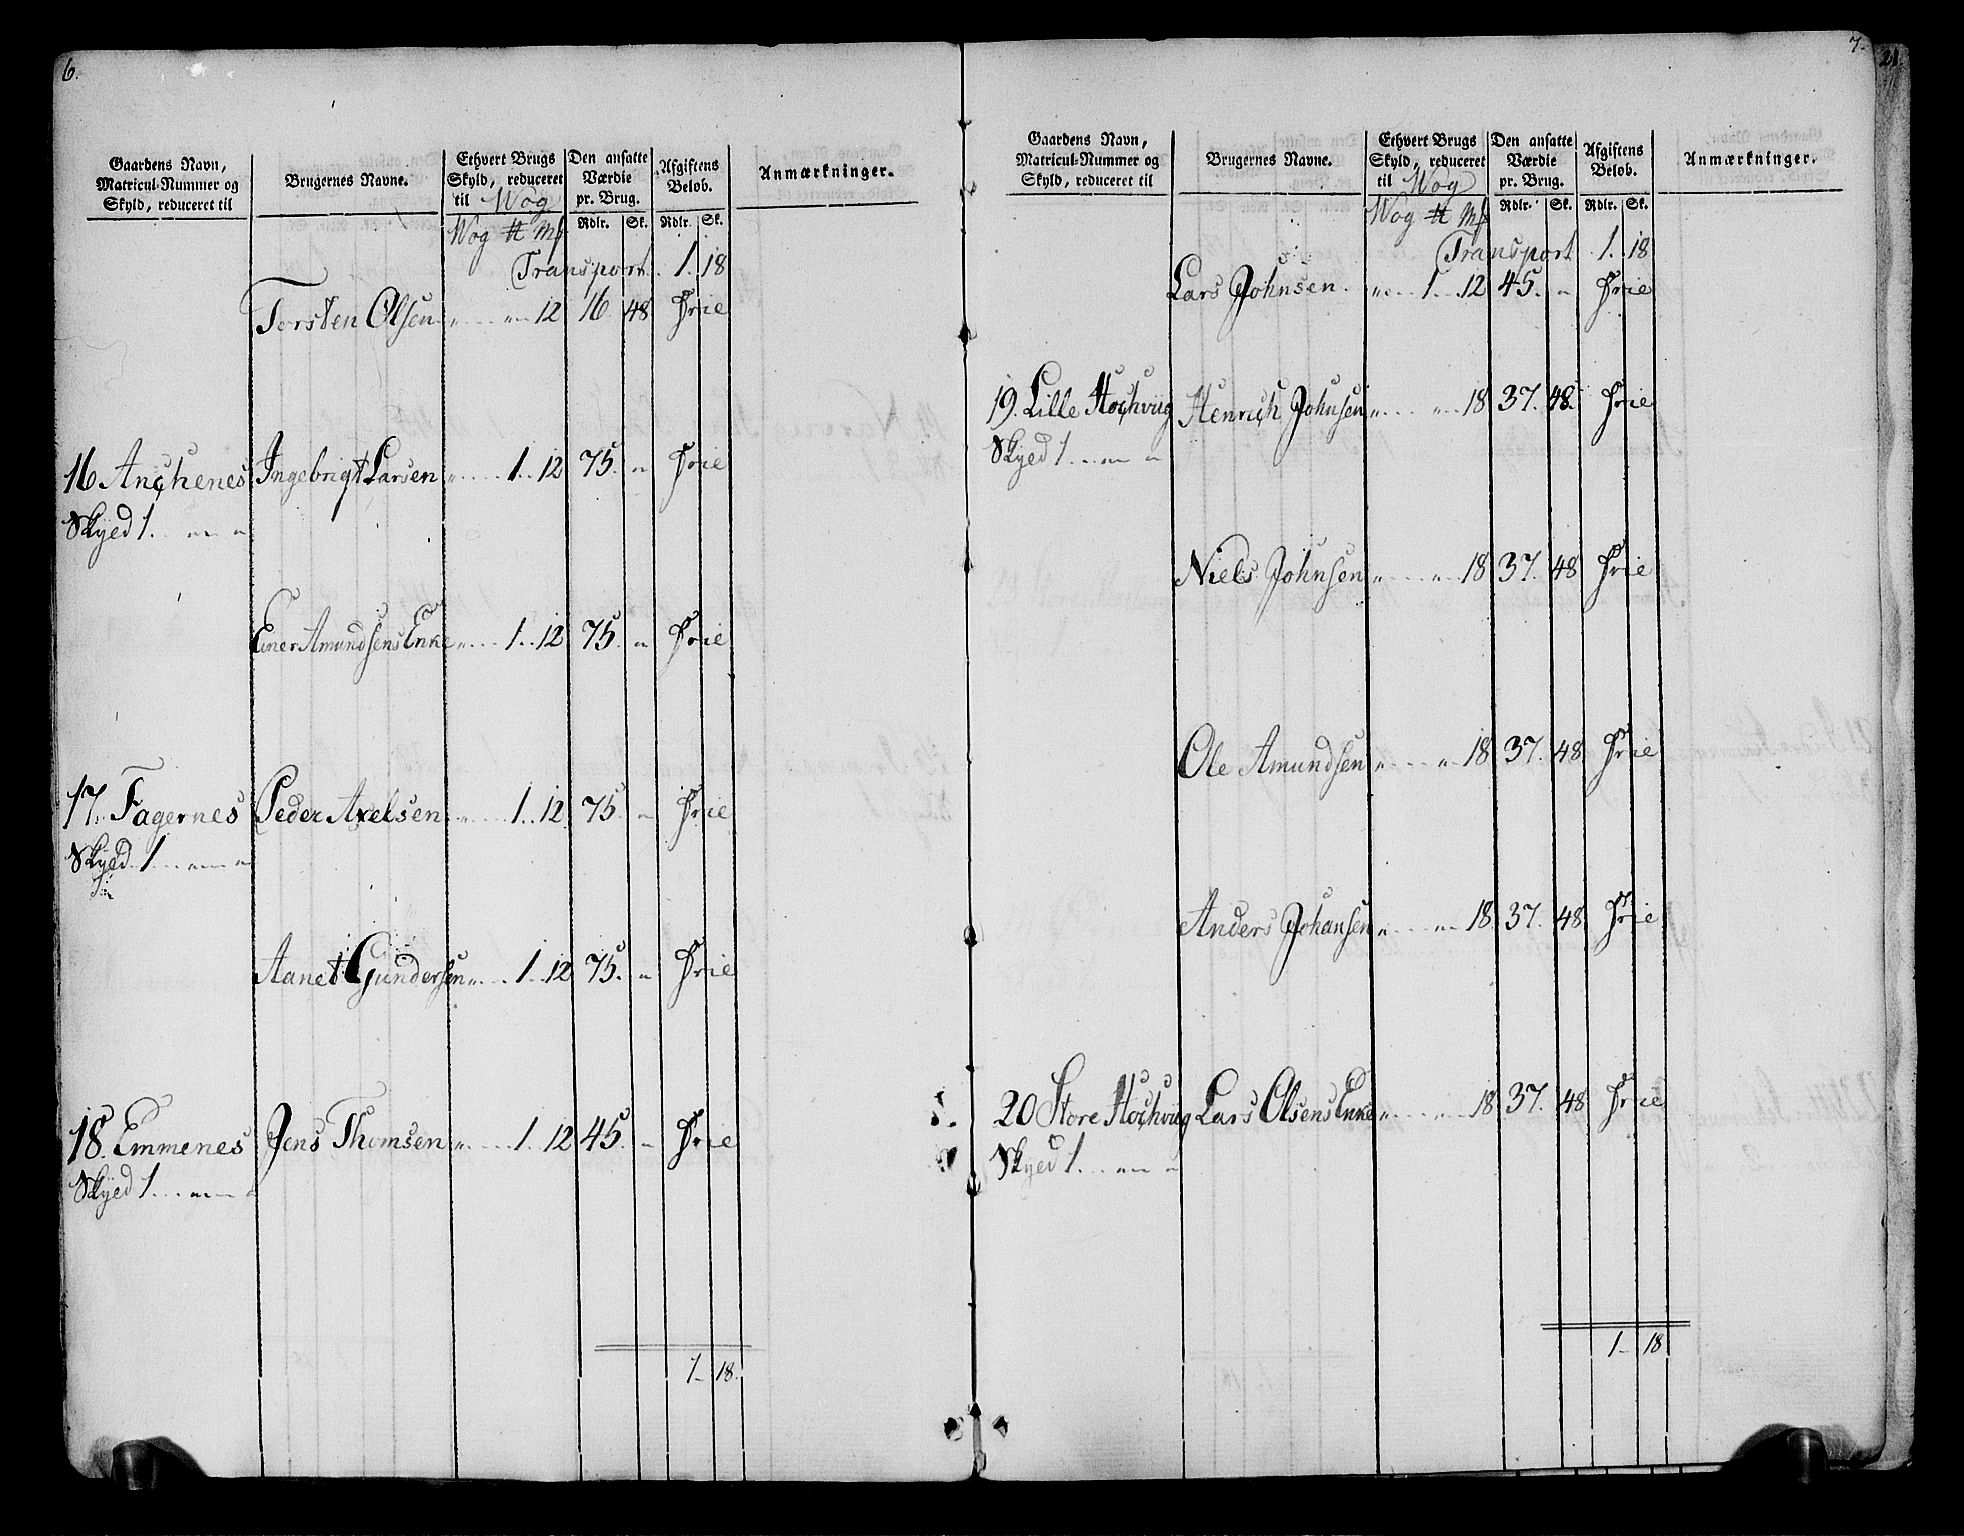 6.
Gaardens Navn, Matricul-Nummer og Skyld, reduceret til | Brugernes Navne. | Ethvert Brugs Skyld, reduceret til Wog | Den ansatte Værdie pr. Brug. | Afgiftens Beløb. | Anmærkninger.
Wog ℔ Mk | Rdlr. | Sk. | Rdlr. | Sk.
Transport. 1. 18
Torsten Olsen " " 12 16. 48 Frie
16 Anchenes Ingebrigt Larsen " 1. 12 75. " Frie
Skyed 1. " "
Einer Amundsens Enke " 1. 12 75. " Frie
17. Fagernes Peder Axelsen " 1. 12 75. " Frie
Skyed 1 " "
Aanet Gundersen " 1. 12 75. " Frie
18. Emmenes Jens Thomsen " 1. 12 45. " Frie
Skyed 1. " "
1 - 18.
7.
21.
Gaardens Navn, Matricul-Nummer og Skyld, reduceret til | Brugernes Navne. | Ethvert Brugs Skyld, reduceret til Wog | Den ansatte Værdie pr. Brug. | Afgiftens Beløb. | Anmærkninger.
Wog ℔ Mk | Rdlr. | Sk. | Rdlr. | Sk.
Transport 1. 18
Lars Johnsen. " 1. 12 45. " Frie
19. Lille Hochviig Henrich Johnsen " " 18 37. 48. Frie
Skyed 1. " "
Niels Johnsen " " 18 37. 48 Frie
Ole Amundsen " " 18 37. 48 Frie
Anders Johansen " " 18 37. 48 Frie
20 Store Hochviig Lars Olsens Enke " " 18 37. 48 Frie
Skyed 1. " "
1 - 18